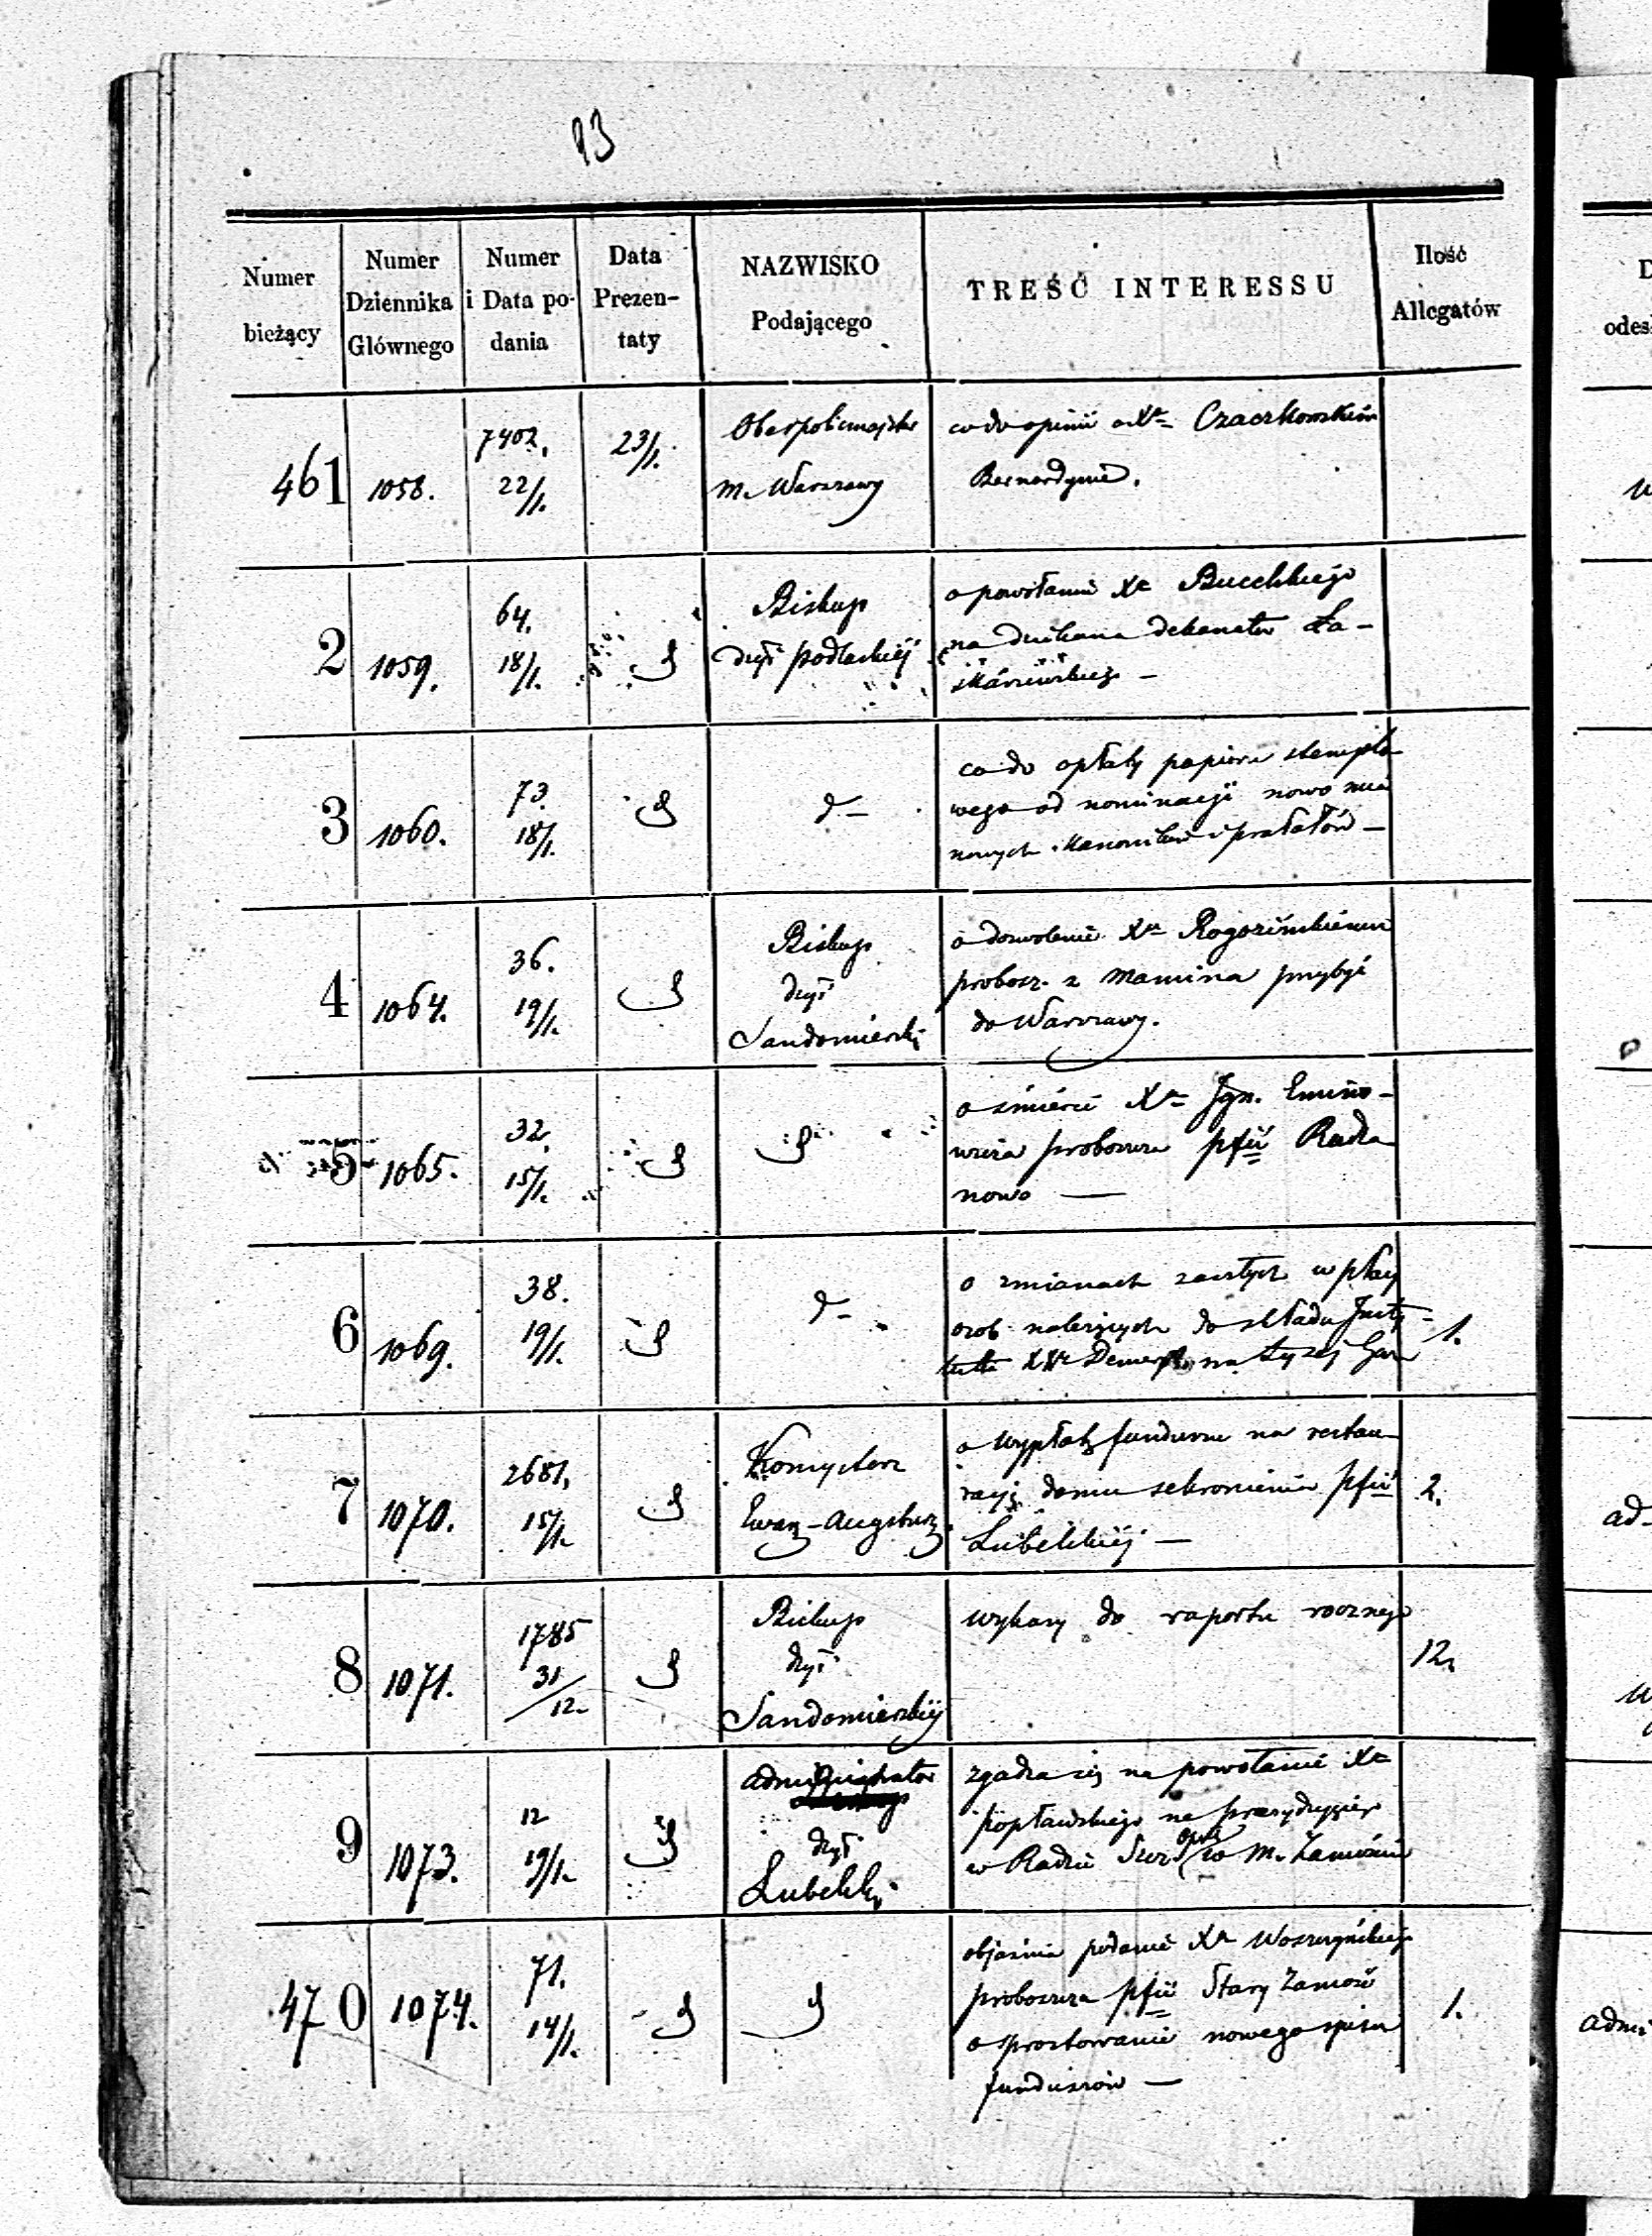 93
Numer bieżący
Numer Dziennika Głównego
Numer i Data podania
Data Prezentaty
NAZWISKO Podającego
TREŚĆ INTERESSU
Ilość Allegatów
461 1058. 7402. 22/1. 23/1. Oberpolicmajster co do opinii o Xa Czaczkowskim
m. Warszawy Bernardynie.
2 1059. 64. 18/1. Biskup o powołaniu Xa
dyi podlaskiéj na dziekana dekanatu Ła-
skarzewskiego —
3 1060. 73. 18/1. d— co do opłaty papieru stemplo
wego od nominacyi nowo mia
nowych Kanoników i prałatów —
4 1064. 36. 19/1. Biskup o dozwolenie Xu Rogozińskiemu
dyi probosz. z Mamina przybyć
Sandomierski do Warszawy.
5 1065. 32. 15/1. o śmierci Xa Ign.
proboszcza pfii Radza
nowo —
6 1069. 38. 19/1. d— o zmianach zaszłych w płacy 1.
osob należących do składu Insty-
tutu XX Demer. na Łyséj Górze
7 1070. 2681. 15/1. Konsystorz o wypłatę funduszu na restau 2.
Ewang-Augsburg racyję domu schronienia pfii
Lubelskiéj —
8 1071. 1785 31/12. Biskup wykazy do raportu rocznego 12.
dyi
Sandomierskiéj
9 1073. 12 19/1. Administrator zgadza się na powołanie Xa
dyi Popławskiego na prezydującego
Lubelski w Radzie Szcz. opiek. w m. Zamościu
470 1074. 71. 14/1. objaśnia podanie Xa Woszczyńskiego 1.
proboszcza pfii Stary Zamość
o sprostowanie nowego spisu
funduszów —